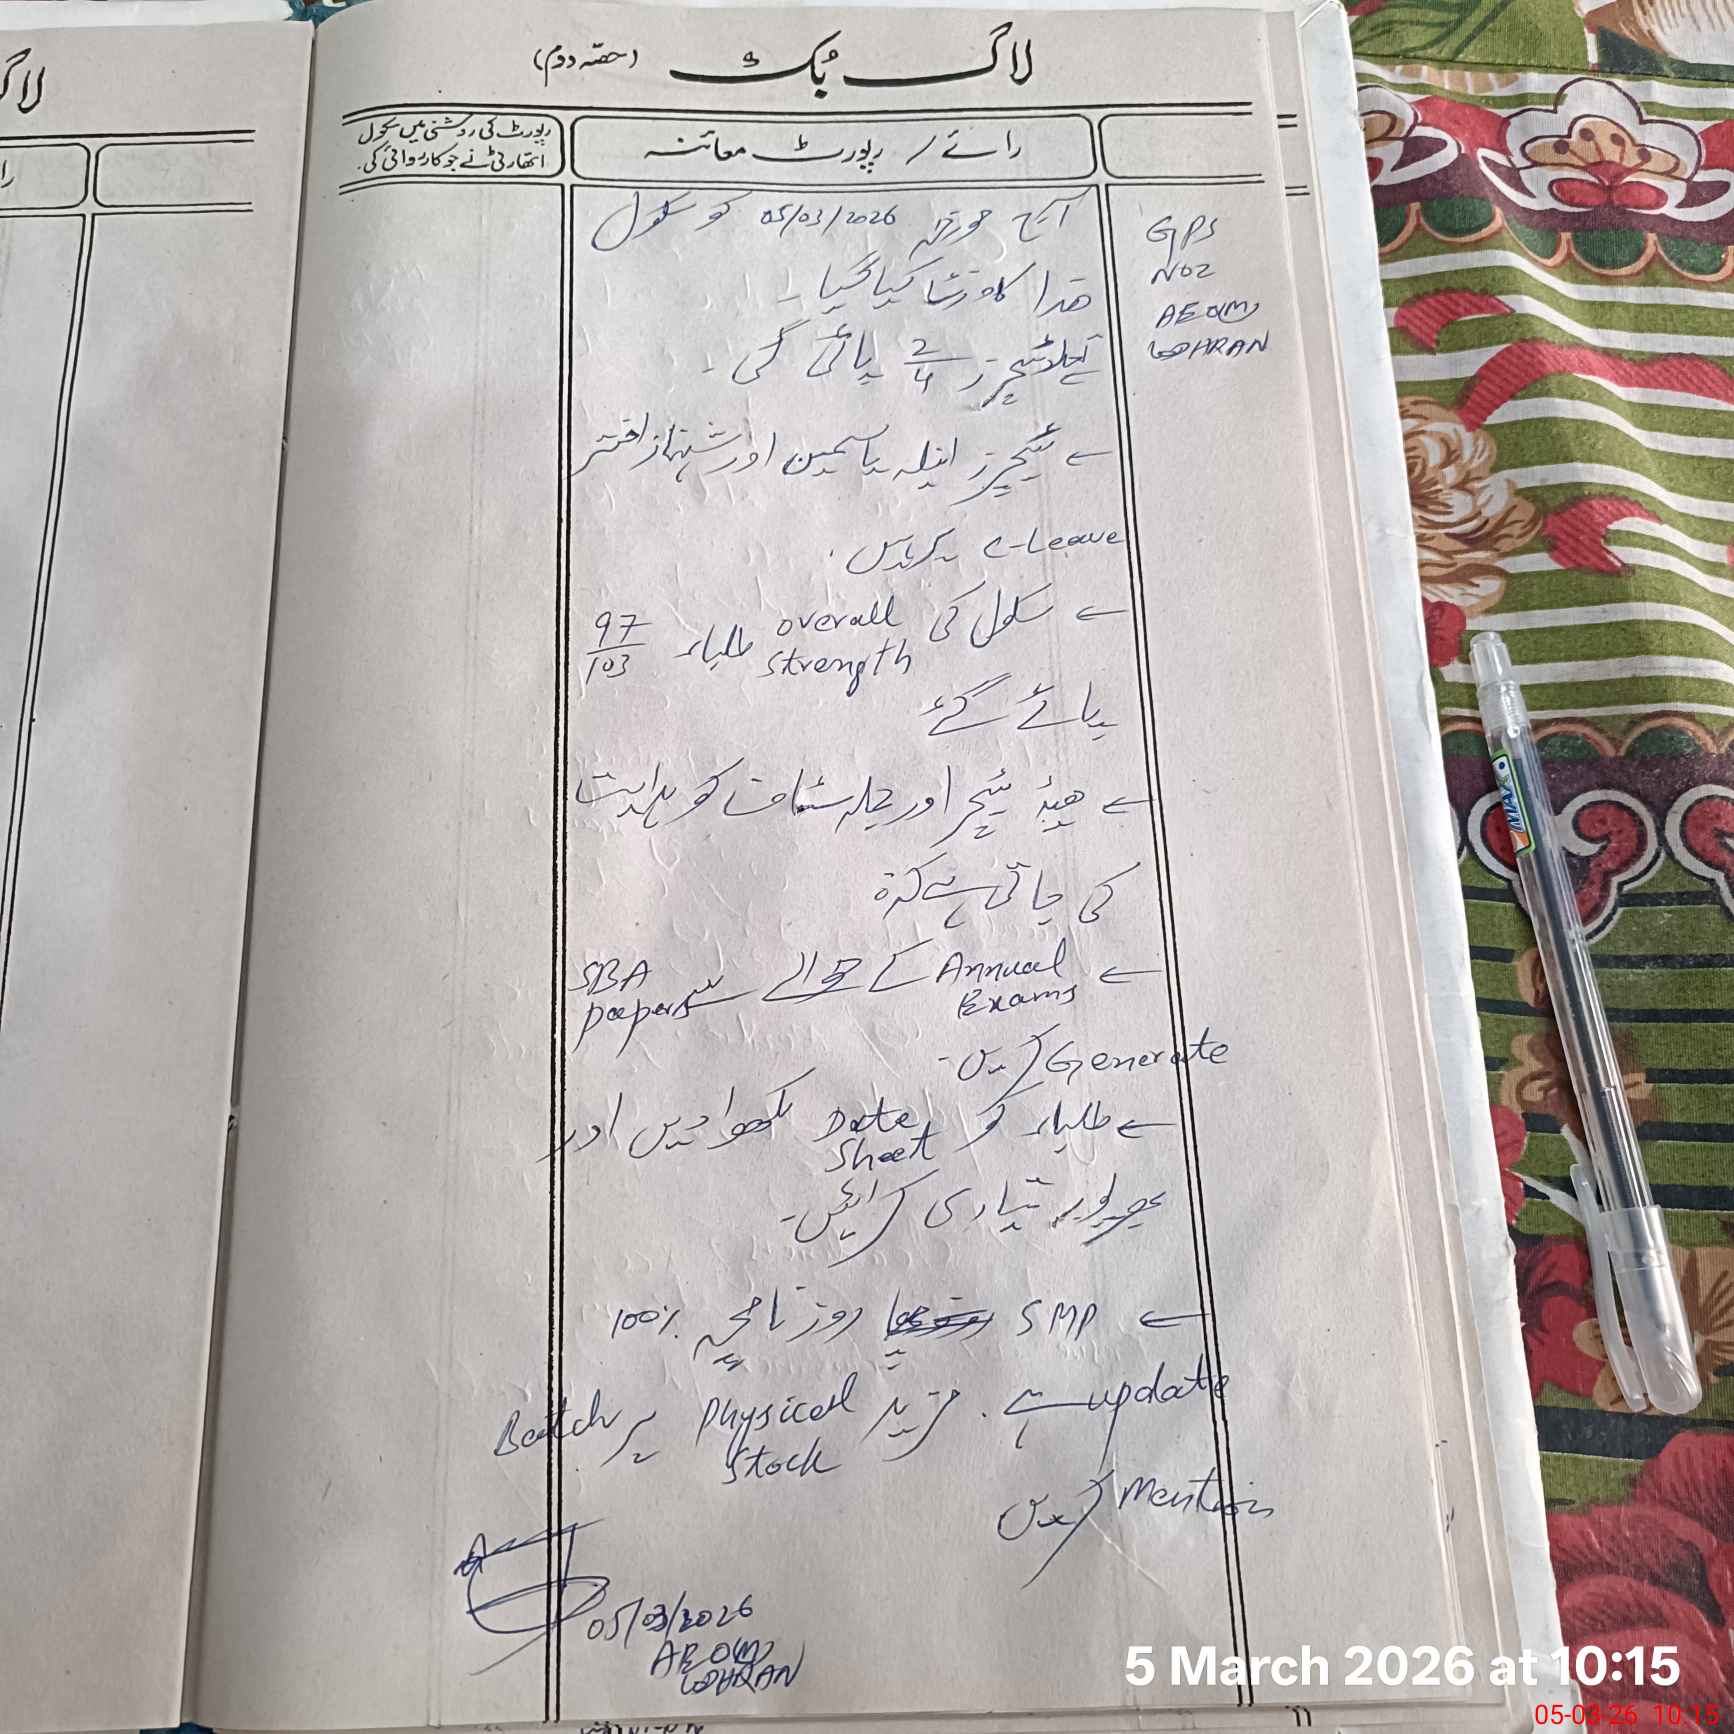 لاگ بُک (حصّہ دوم)
رائے / رپورٹ معائنہ
رپورٹ کی روشنی میں سکول
اتھارٹی نے جو کاروائی کی.
GPS
NO2
AEO(M)
آج مورخہ 05/03/2026 کو سکول
ھذا کا وزٹ کیا گیا ۔
ٹیچرز 2/4 پائی گی ۔
← ٹیچرز انیلہ یاسمین اور شہناز اختر
e-Leave پر ہیں ۔
← سکول کی overall strength طلباء 97/103
پائے گئے
← ھیڈ ٹیچر اور جملہ سٹاف کو ہدایت
کی جاتی ہے کہ
← Annual Exams کے حوالے سے SBA papers
Generate کریں ۔
← طلباء کو Date Sheet لکھوا دیں اور
بھرپور تیاری کرائیں ۔
← SMP روزنامچہ 100%
update ہے ۔ مزید Physical Stock پر Batch
Mention کریں
05/03/2026
AEO(M)
5 March 2026 at 10:15
05-03-26 10:15